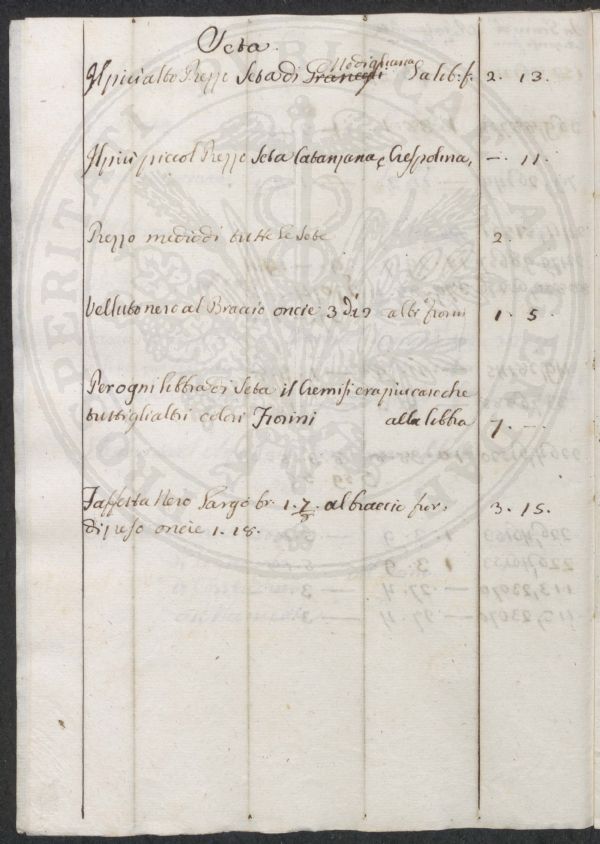 Seta
Il più alto Prezzo Seta di Modigliana La lib: f. 2. 13.
Il più piccol Prezzo Seta Catanzana, e Crespolina, —. 11.
Prezzo medio di tutte le Sete 2.
Velluto nero al Braccio oncie 3 d: 9 altri fiorini 1. 5.
Per ogni libbra di Seta il Cremisi era più caro che
tutti gli altri colori Fiorini alla libbra 7. —
Taffetta Nero Largo br. 1. 7/8. al braccio fior.
di peso oncie 1. 18. 3. 15.
PROSPERITATI PUBLICAE AUGENDAE